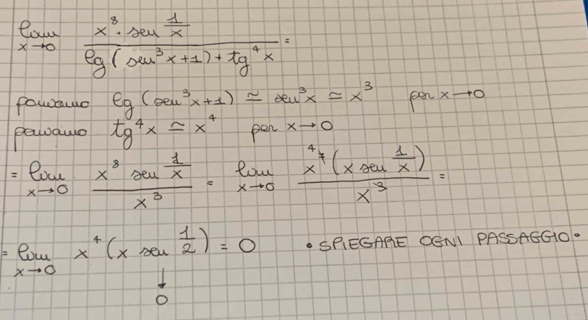 lim x→0 x⁸ · sen 1/x / lg(sen³x+1) + tg⁴x =
poniamo lg(sen³x+1) ≃ sen³x ≃ x³ per x→0
poniamo tg⁴x ≃ x⁴ per x→0
= lim x→0 x⁸ sen 1/x / x³ = lim x→0 x⁷ ⁴ (x sen 1/x) / x³ =
= lim x→0 x⁴ (x sen 1/2) = 0 • SPIEGARE OGNI PASSAGGIO •
↓
0